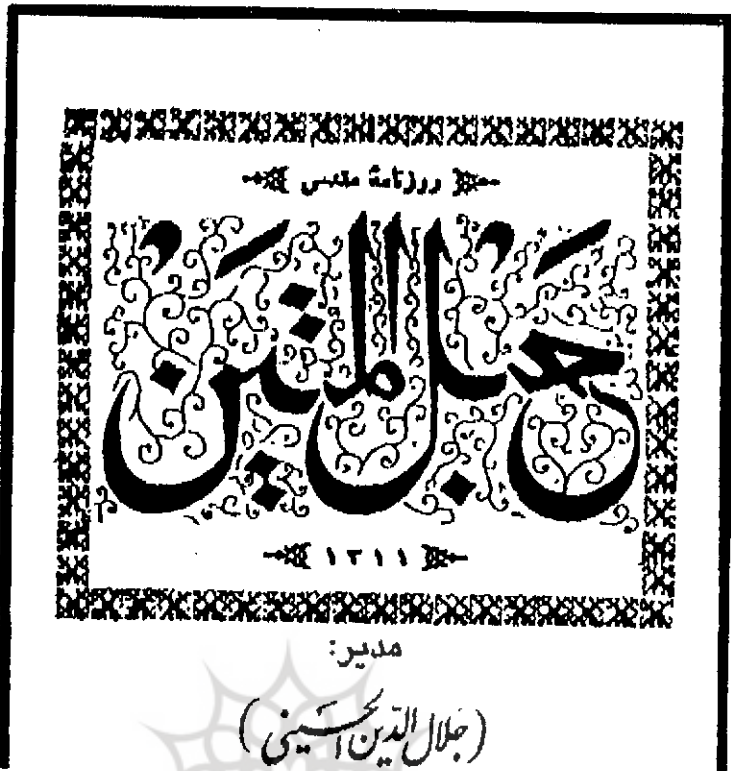 روزنامهٔ مقدس
حَبلُ المَتینُ
۱۳۱۱
مدیر:
(جلال الدّین الحسینی)